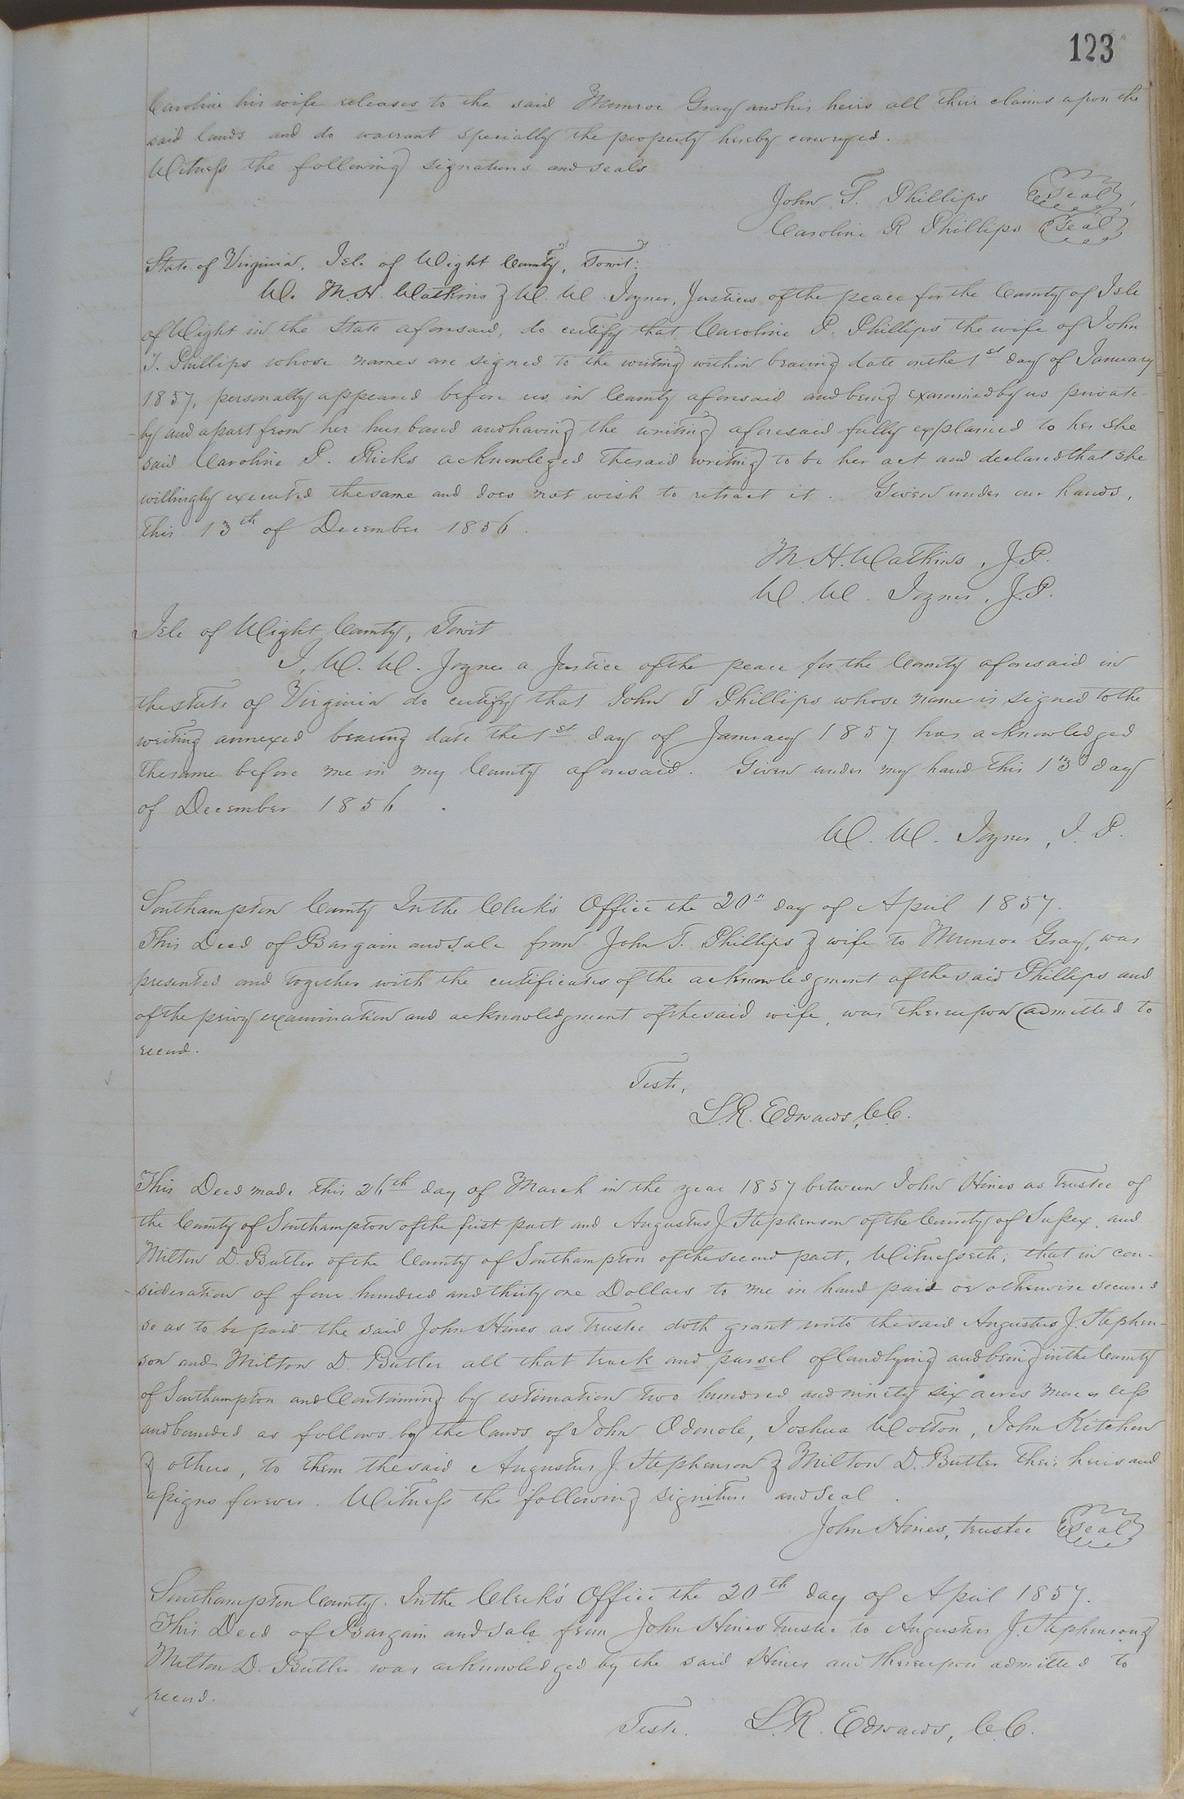 123
Caroline his wife releases to the said Munroe Gray and his heirs all their claims upon the
said lands and do warrant specially the property hereby conveyed.
Witness the following signatures and seals
John T. Phillips Seal
Caroline R Phillips Seal
State of Virginia, Isle of Wight County, Towit:
We M. H. Watkins & W. W. Joyner, Justices of the peace for the County of Isle
of Wight in the State aforesaid, do certify that Caroline P. Phillips the wife of John
T. Phillips whose names are signed to the writing within bearing date on the 1st day of January
1857, personally appeared before us in County aforesaid and being examined by us private
by and apart from her husband and having the writing aforesaid fully explained to her she
said Caroline P. Ricks acknowleged the said writing to be her act and declared that she
willingly executed the same and does not wish to retract it. Given under our hands,
this 13th of December 1856.
M. H. Watkins, J.P.
W. W. Joyner, J.P.
Isle of Wight County, Towit
I, W. W. Joyner a Justice of the peace for the County aforesaid in
the state of Virginia do certify that John T Phillips whose name is signed to the
writing annexed bearing date the 1st day of January 1857 has acknowledged
the same before me in my County aforesaid. Given under my hand this 13th day
of December 1856.
W. W. Joyner, J. P.
Southampton County In the Clerk's Office the 20th day of April 1857.
This Deed of Bargain and Sale from John T. Phillips & wife to Munroe Gray, was
presented and together with the certificates of the acknowledgment of the said Phillips and
of the privy examination and acknowledgment of the said wife, was thereupon admitted to
record.
Teste,
L. R. Edwards, C.C.
This Deed made this 26th day of March in the year 1857 between John Hines as trustee of
the County of Southampton of the first part and Augustus J. Stephenson of the County of Sussex, and
Milton D. Butler of the County of Southampton of the second part, Witnesseth; that in con-
sideration of four hundred and thirty one Dollars to me in hand paid or otherwise secured
so as to be paid the said John Hines as trustee doth grant unto the said Augustus J. Stephen-
son and Milton D. Butler all that track and parsel of land lying and being in the County
of Southampton and Containing by estimation two hundred and ninety six acres more or less
and bounded as follows by the lands of John Odenole, Joshua Wotton, John Kitchen
& others, to them the said Augustus J. Stephenson & Milton D. Butler their heirs and
assigns forever. Witness the following signiture and seal.
John Hines, trustee Seal
Southampton County. In the Clerk's Office the 20th day of April 1857.
This Deed of Bargain and Sale from John Hines trustee to Augustus J. Stephenson &
Milton D. Butler was acknowledged by the said Hines and thereupon admitted to
record.
Teste. L. R. Edwards, C.C.